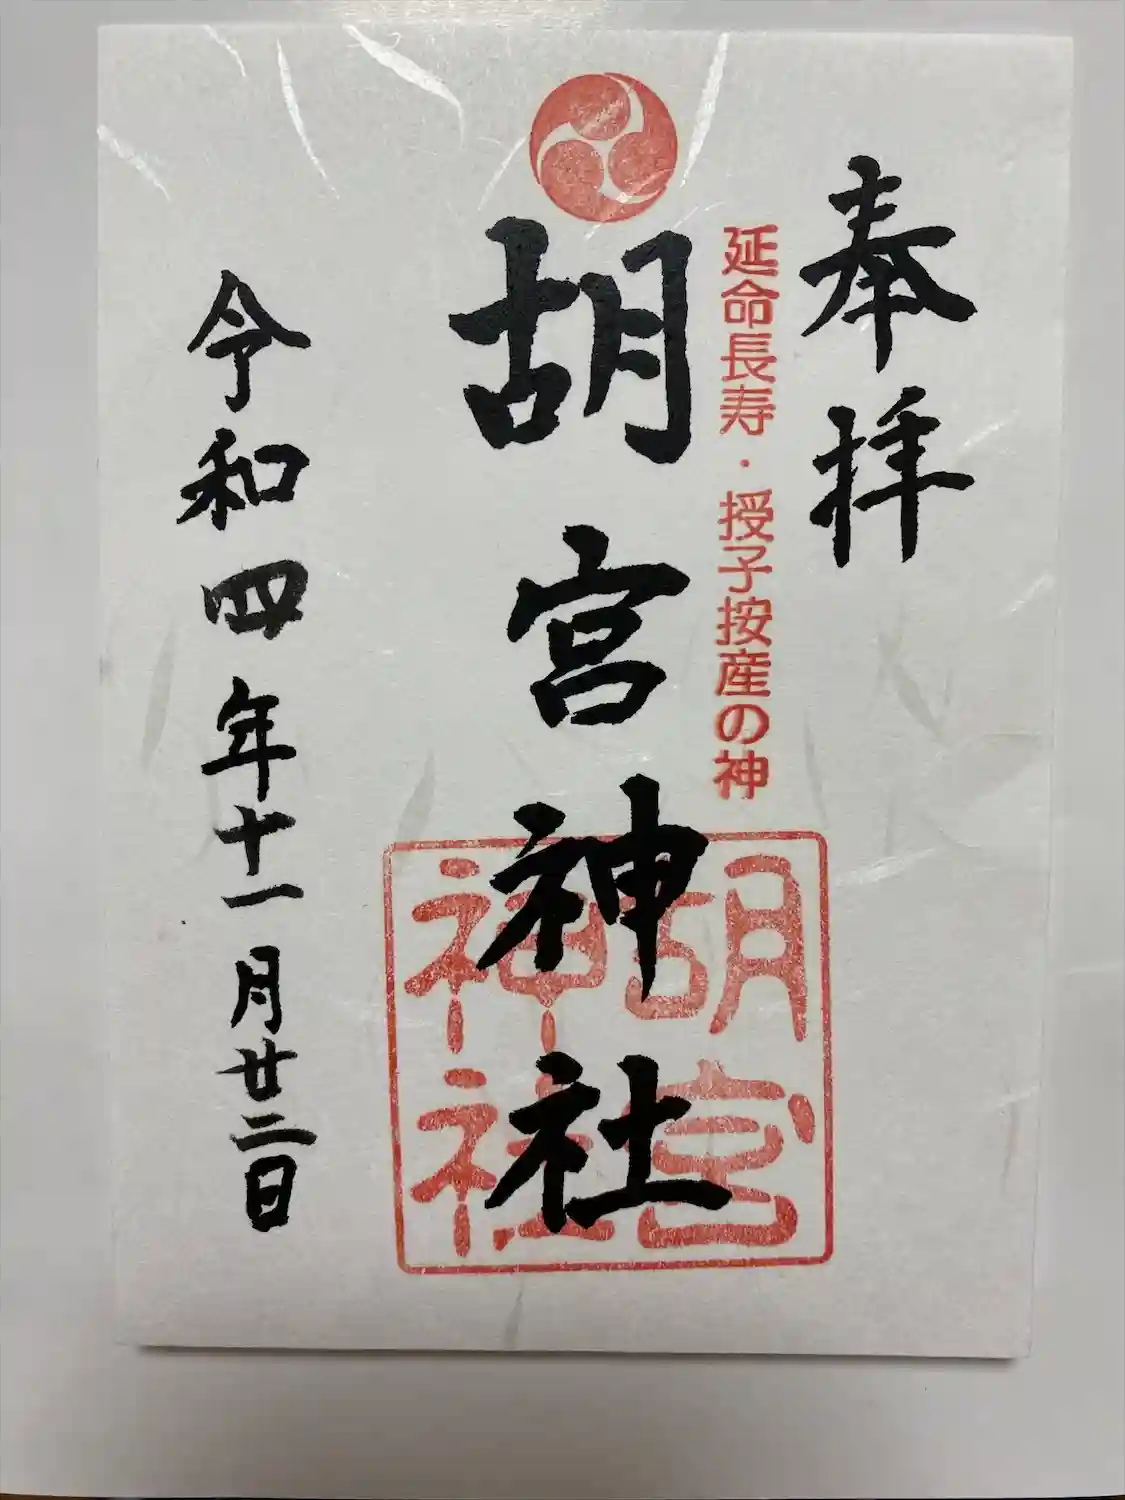 奉拝
延命長寿・授子按産の神
胡宮神社
胡宮
神社
令和四年十一月廿二日